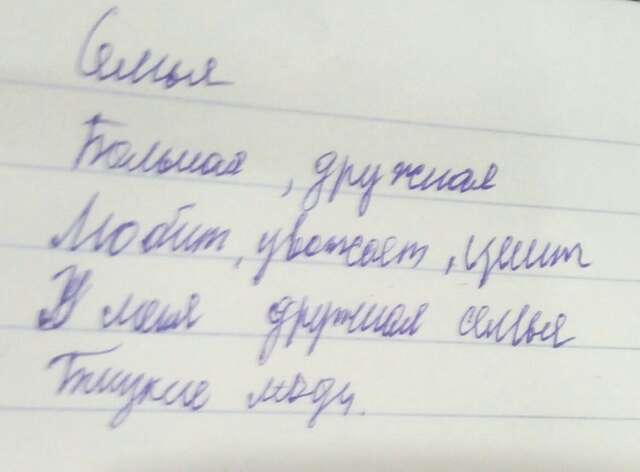 Семья
Большая, дружная
Любит, уважает, ценит
У меня дружная семья
Близкие люди.